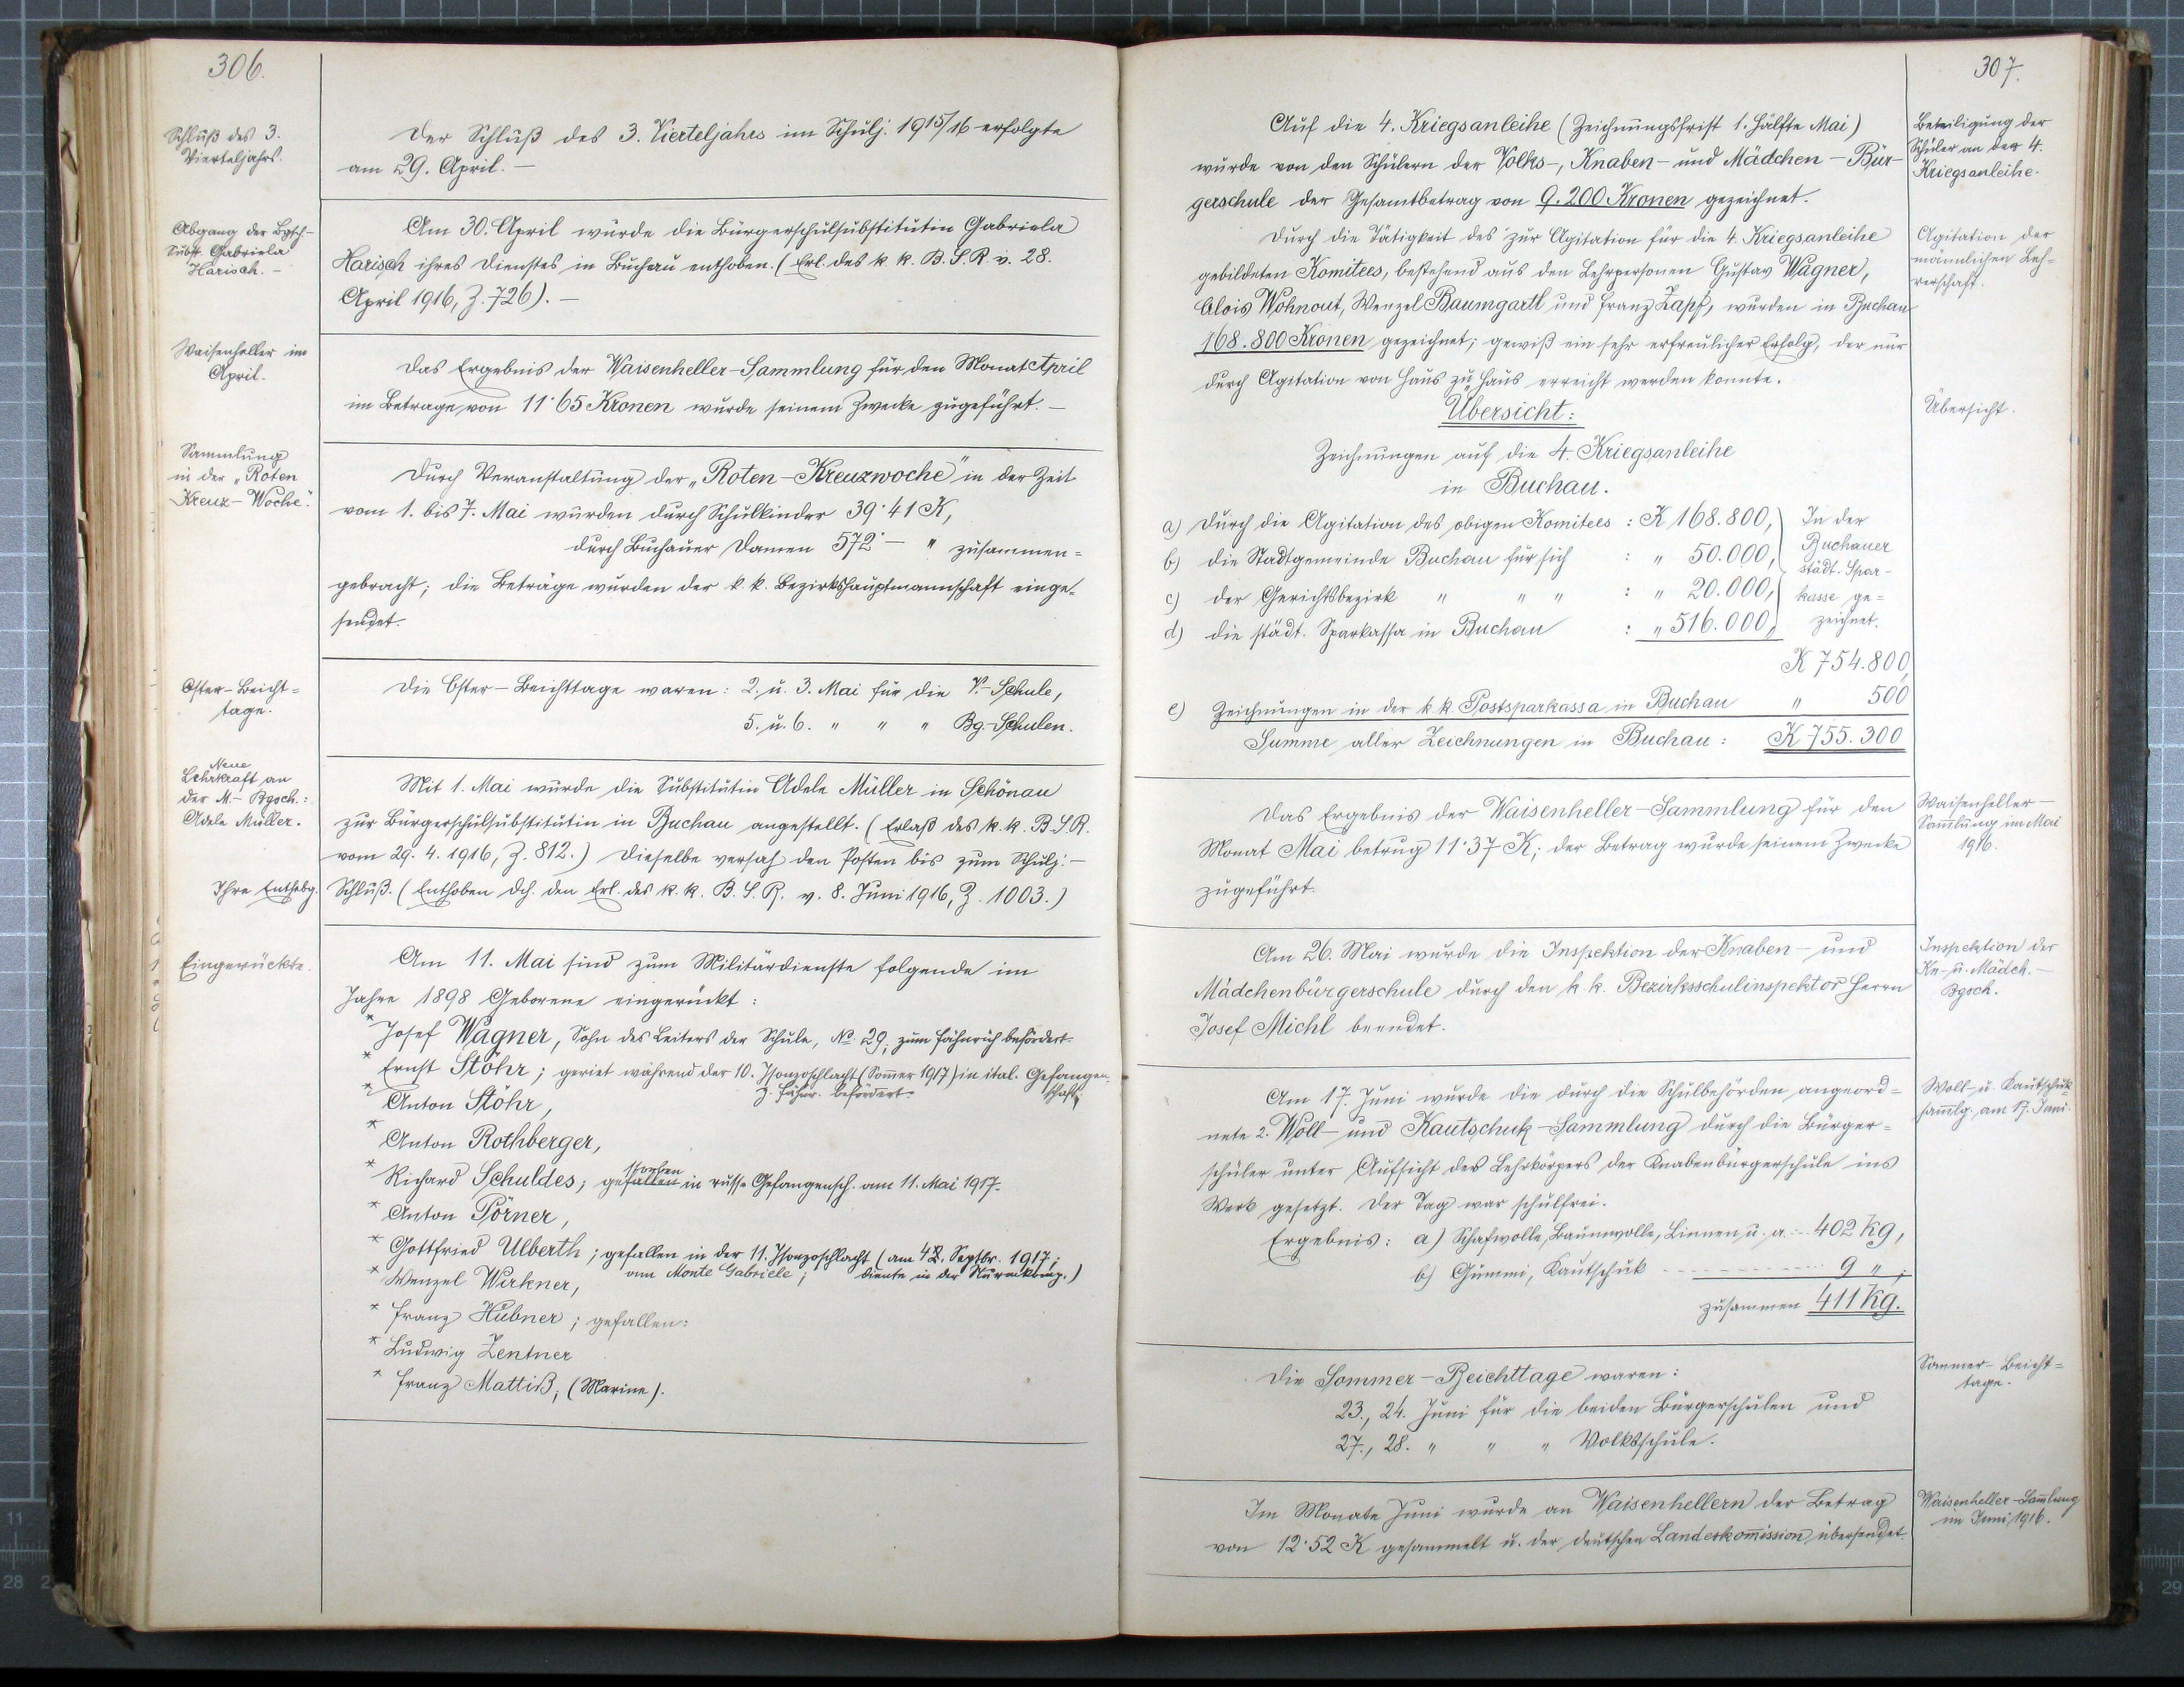 306.
Schluß des 3.
Vierteljahrs.
Der Schluß des 3. Vierteljahrs im Schulj. 1915/16 erfolgte
am 29. April. —
Abgang der Bgsch.-
Subst. Gabriela
Harisch. —
Am 30. April wurde die Bürgerschulsubstitutin Gabriela
Harisch ihres Dienstes in Buchau enthoben. (Erl. des k. k. B. S. R. v. 28.
April 1916, Z. 726). —
Waisenheller im
April.
Das Ergebnis der Waisenheller-Sammlung für den Monat April
im Betrage von 11·65 Kronen wurde seinem Zwecke zugeführt. —
Sammlung
in der „Roten
Kreuz-Woche".
Durch Veranstaltung der „Roten-Kreuzwoche" in der Zeit
vom 1. bis 7. Mai wurden durch Schulkinder 39·41 K,
durch Buchauer Damen 572·— " zusammen=
gebracht; die Beträge wurden der k. k. Bezirkshauptmannschaft einge-
sendet.
Oster-Beicht=
tage.
Die Oster-Beichttage waren: 2. u. 3. Mai für die V.-Schule,
5. u. 6. " " " Bg.-Schulen.
Neue
Lehrkraft an
der M.-Bgsch.:
Adele Müller.
Mit 1. Mai wurde die Substitutin Adele Müller in Schönau
zur Bürgerschulsubstitutin in Buchau angestellt. (Erlaß des k. k. B. S. R.
vom 29. 4. 1916, Z. 812.) Dieselbe versah den Posten bis zum Schulj.-
Ihre Enthebg.
Schluß. (Enthoben dch. den Erl. des k. k. B. S. R. v. 8. Juni 1916, Z. 1003.)
Eingerückte.
Am 11. Mai sind zum Militärdienste folgende im
Jahre 1898 Geborene eingerückt:
* Josef Wagner, Sohn des Leiters der Schule, No. 29; zum Fähnrich befördert.
* Ernst Stöhr; geriet während der 10. Isonzoschlacht (Som̄er 1917) in ital. Gefangen-
schaft;
z. Fähnr. befördert.
* Anton Stöhr,
* Anton Rothberger,
* Richard Schuldes; gestorben in russ. Gefangensch. am 11. Mai 1917.
* Anton Pörner,
* Gottfried Ulberth; gefallen in der 11. Isonzoschlacht (am 4. Septbr. 1917;
am Monte Gabriele; diente in der
* Wenzel Wirkner,
* Franz Hübner; gefallen:
* Ludwig Zentner
* Franz Mattiß, (Marine).
307.
Auf die 4. Kriegsanleihe (Zeichnungsfrist 1. Hälfte Mai)
wurde von den Schülern der Volks-, Knaben- und Mädchen-Bür-
gerschule der Gesamtbetrag von 9.200 Kronen gezeichnet.
Beteiligung der
Schüler an der 4.
Kriegsanleihe.
Durch die Tätigkeit des zur Agitation für die 4. Kriegsanleihe
gebildeten Komitees, bestehend aus den Lehrpersonen Gustav Wagner,
Alois Wohnout, Wenzel Baumgartl und Franz Zapf, wurden in Buchau
168.800 Kronen gezeichnet; gewiß ein sehr erfreulicher Erfolg, der nur
durch Agitation von Haus zu Haus erreicht werden konnte.
Agitation der
männlichen Leh=
rerschaft.
Übersicht:
Übersicht.
Zeichnungen auf die 4. Kriegsanleihe
in Buchau.
a) Durch die Agitation des obigen Komitees : K 168.800,
b) die Stadtgemeinde Buchau für sich : " 50.000,
c) der Gerichtsbezirk " " " : " 20.000,
d) die städt. Sparkassa in Buchau : " 516.000,
In der
Buchauer
städt. Spar-
kasse ge=
zeichnet.
K 754.800,
e) Zeichnungen in der k. k. Postsparkassa in Buchau " 500
Summe aller Zeichnungen in Buchau: K 755.300
Das Ergebnis der Waisenheller-Sammlung für den
Monat Mai betrug 11·37 K; der Betrag wurde seinem Zwecke
zugeführt.
Waisenheller-
Sam̄lung im Mai
1916.
Am 26. Mai wurde die Inspektion der Knaben- und
Mädchenbürgerschule durch den k. k. Bezirksschulinspektor Herrn
Josef Michl beendet.
Inspektion der
Kn- u. Mädch.-
Bgsch.
Am 17. Juni wurde die durch die Schulbehörden angeord=
nete 2. Woll- und Kautschuk-Sammlung durch die Bürger=
schüler unter Aufsicht des Lehrkörpers der Knabenbürgerschule ins
Werk gesetzt. Der Tag war schulfrei.
Woll- u. Kautschuk
sam̄lg. am 17. Juni.
Ergebnis: a) Schafwolle, Baumwolle, Linnen u. a. -- 402 kg,
b) Gummi, Kautschuk ---------- 9 ";
zusammen 411 kg.
Die Sommer-Beichttage waren:
23., 24. Juni für die beiden Bürgerschulen und
27., 28. " " " Volksschule.
Sommer-Beicht=
tage.
Im Monate Juni wurde an Waisenhellern der Betrag
von 12·52 K gesammelt u. der deutschen Landeskom̄ission übersendet.
Waisenheller-Sam̄lung
im Juni 1916.